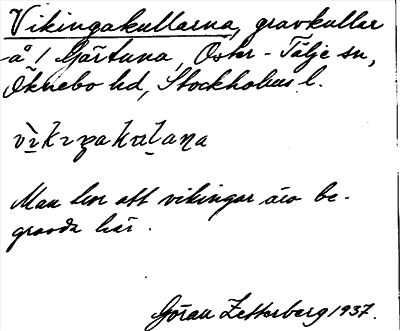 Vikingakullarna, gravkullar
-å 1 Gärtuna, Öster-Tälje sn,
Öknebo hd, Stockholms l.
Man tror att vikingar äro be-
gravda här.
Göran Zetterberg 1937.